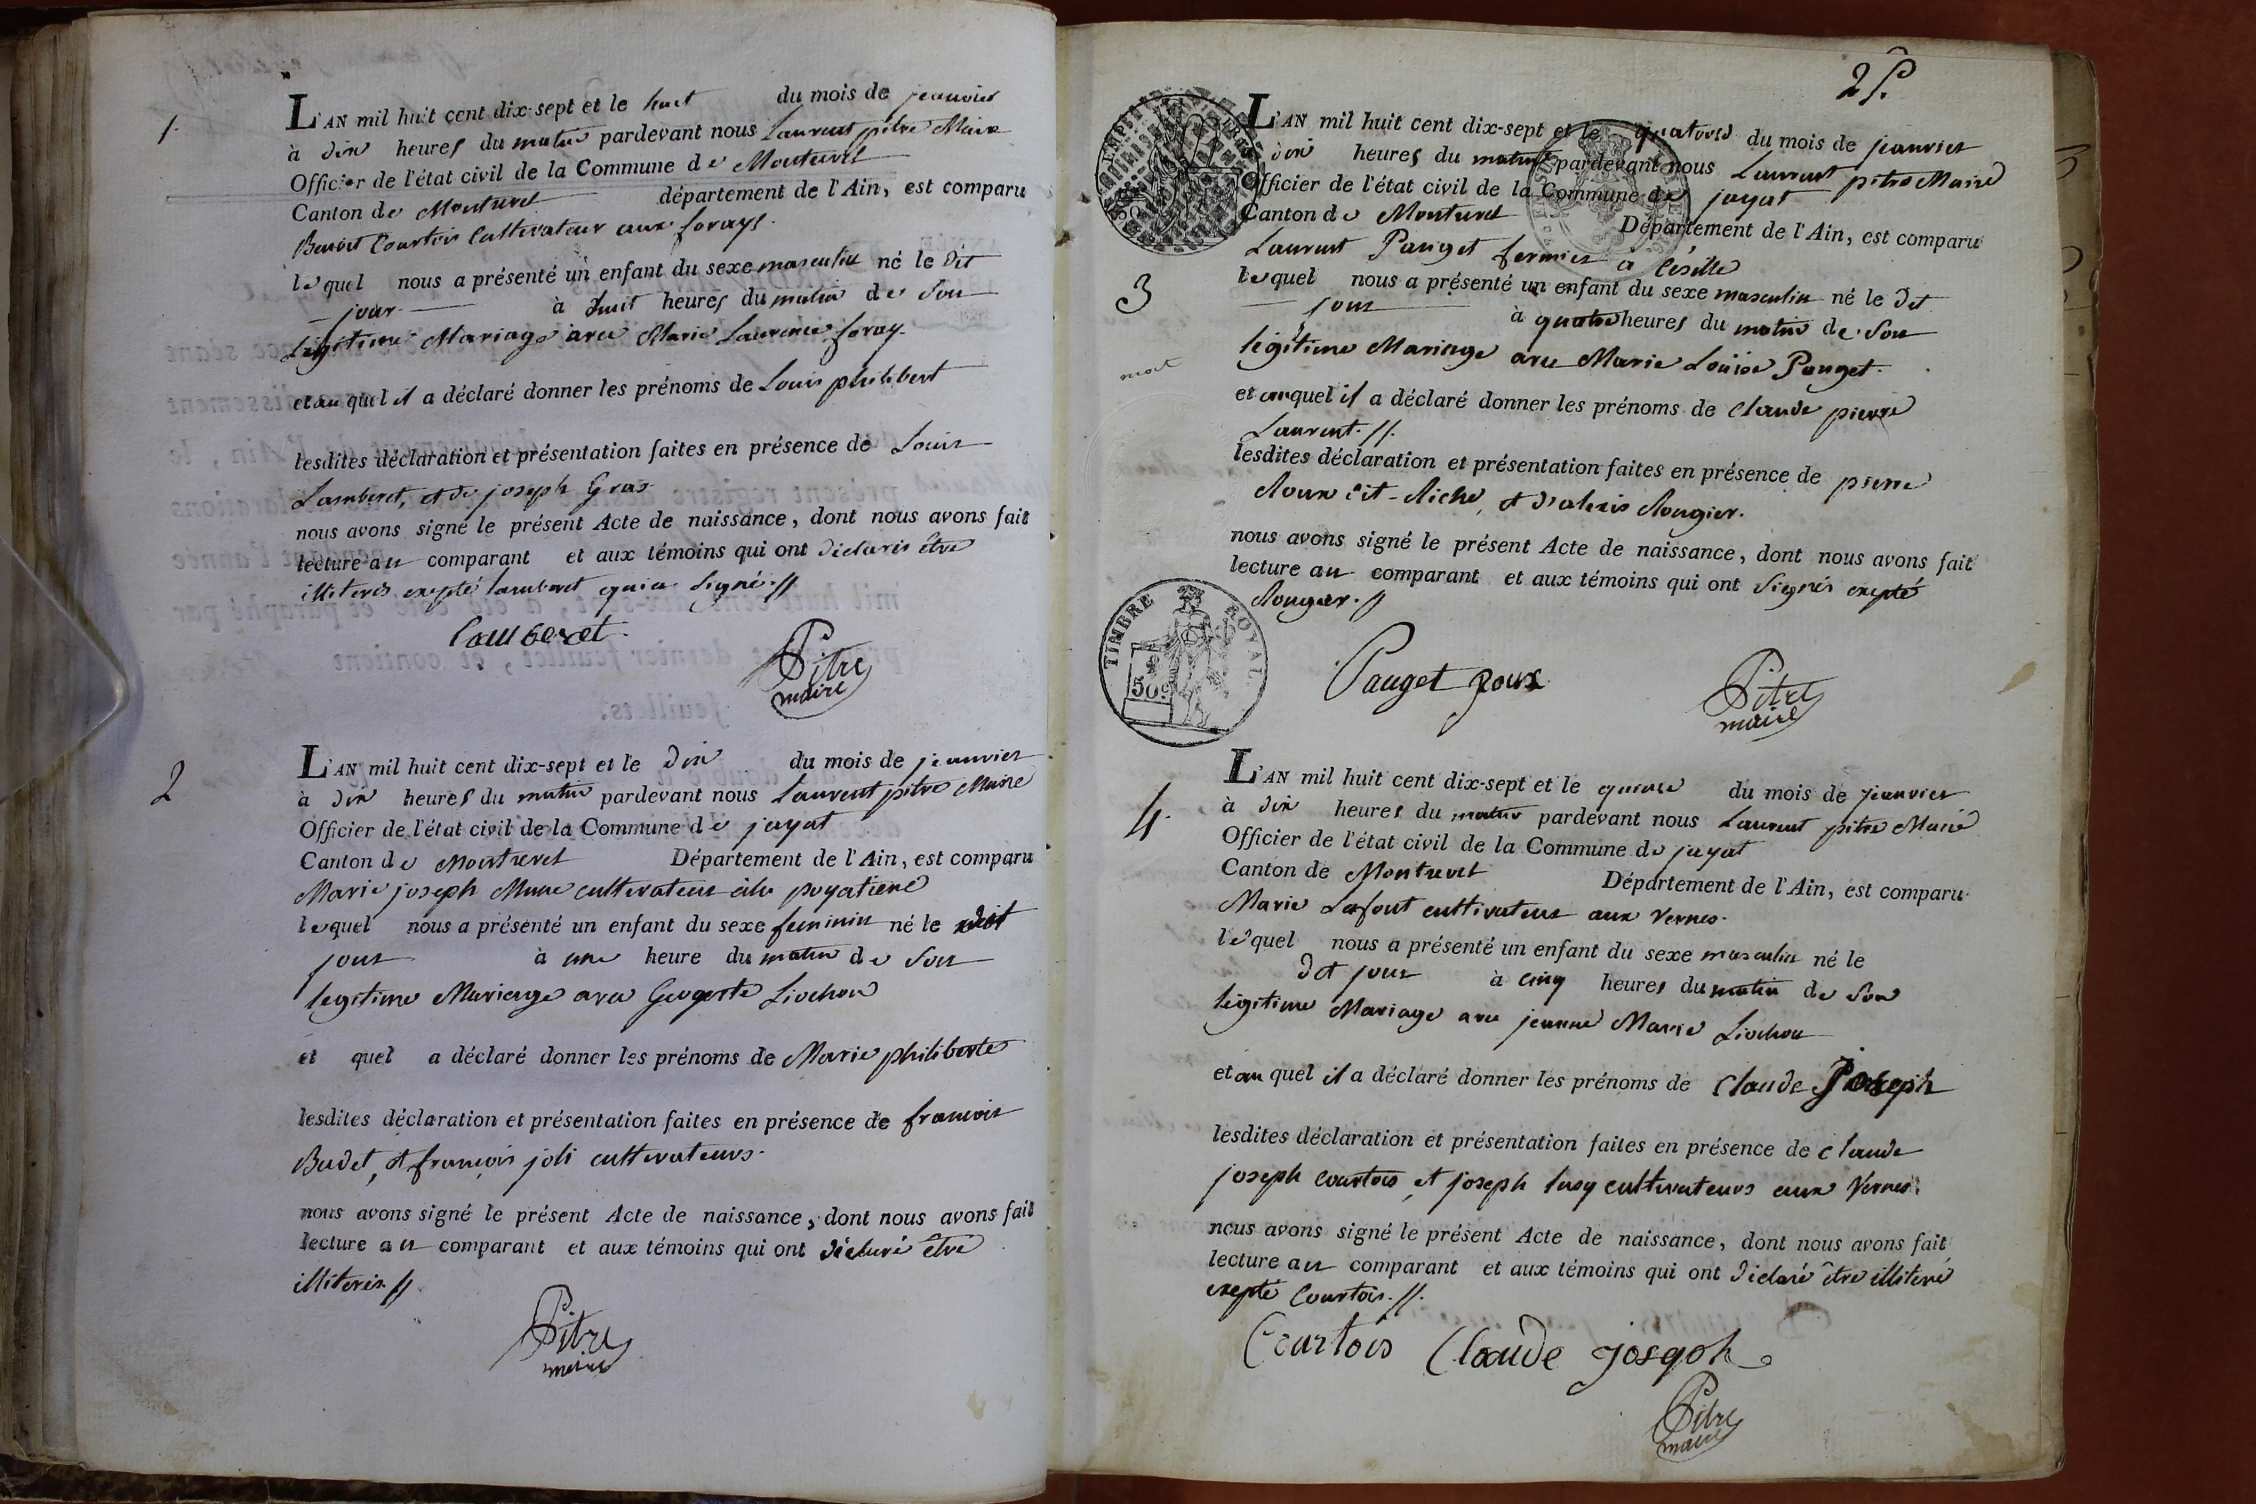 1.
L'AN mil huit cent dix-sept et le huit du mois de jeanvier
à dix heures du matin pardevant nous Laurent pitre Maire
Officier de l'état civil de la Commune de Montrevel
Canton de Montrevel département de l'Ain, est comparu
Benoit Courtois Cultivateur aux forays.
lequel nous a présenté un enfant du sexe masculin né le dit
jour à huit heures du matin de son
Légitime Mariage avec Marie Laurence foray
et au quel il a déclaré donner les prénoms de Louis philibert
lesdites déclaration et présentation faites en présence de Louis
Lamberet, et de joseph Gras
nous avons signé le présent Acte de naissance, dont nous avons fait
lecture au comparant et aux témoins qui ont déclarés être
illiterés exepté lamberet qui a signé.//
Lamberet.
Pitre
maire
2
L'AN mil huit cent dix-sept et le dix du mois de jeanvier
à dix heures du matin pardevant nous Laurent pitre Maire
Officier de l'état civil de la Commune de jayat
Canton de Montrevel Département de l'Ain, est comparu
Marie joseph cultivateur à la poyatiere
lequel nous a présenté un enfant du sexe feminin né le dit
jour à une heure du matin de son
legitime Mariage avec Liochon
et quel a déclaré donner les prénoms de Marie philiberte
lesdites déclaration et présentation faites en présence de francois
Budet, et françois joli cultivateurs.
nous avons signé le présent Acte de naissance, dont nous avons fait
lecture au comparant et aux témoins qui ont déclaré être
illiterés //
Pitre
maire
2
L'AN mil huit cent dix-sept et le quatorze du mois de jeanvier
à dix heures du matin pardevant nous Laurent pitre Maire
Officier de l'état civil de la Commune de jayat
Canton de Montrevel Département de l'Ain, est comparu
Laurent Pauget fermier à
3
lequel nous a présenté un enfant du sexe masculin né le dit
jour à quatre heures du matin de son
légitime Mariage avec Marie Louise Pauget.
mort
et auquel il a déclaré donner les prénoms de claude pierre
Laurent.//.
lesdites déclaration et présentation faites en présence de pierre
dit et d'alexis
nous avons signé le présent Acte de naissance, dont nous avons fait
lecture au comparant et aux témoins qui ont signés exepté
TIMBRE ROYAL
50c
Pauget
Pitre
maire
4.
L'AN mil huit cent dix-sept et le quinze du mois de jeanvier
à dix heures du matin pardevant nous Laurent pitre Maire
Officier de l'état civil de la Commune de jayat
Canton de Montrevel Département de l'Ain, est comparu
Marie Lafont cultivateur aux Vernes.
lequel nous a présenté un enfant du sexe masculin né le
dit jour à cinq heures du matin de son
légitime Mariage avec jeanne Marie Liochon
et au quel il a déclaré donner les prénoms de claude Joseph
lesdites déclaration et présentation faites en présence de claude
joseph courtois, et joseph cultivateurs aux Vernes.
nous avons signé le présent Acte de naissance, dont nous avons fait
lecture au comparant et aux témoins qui ont déclaré être illiteré
exepté Courtois.//.
Courtois Claude josqoh
Pitre
maire